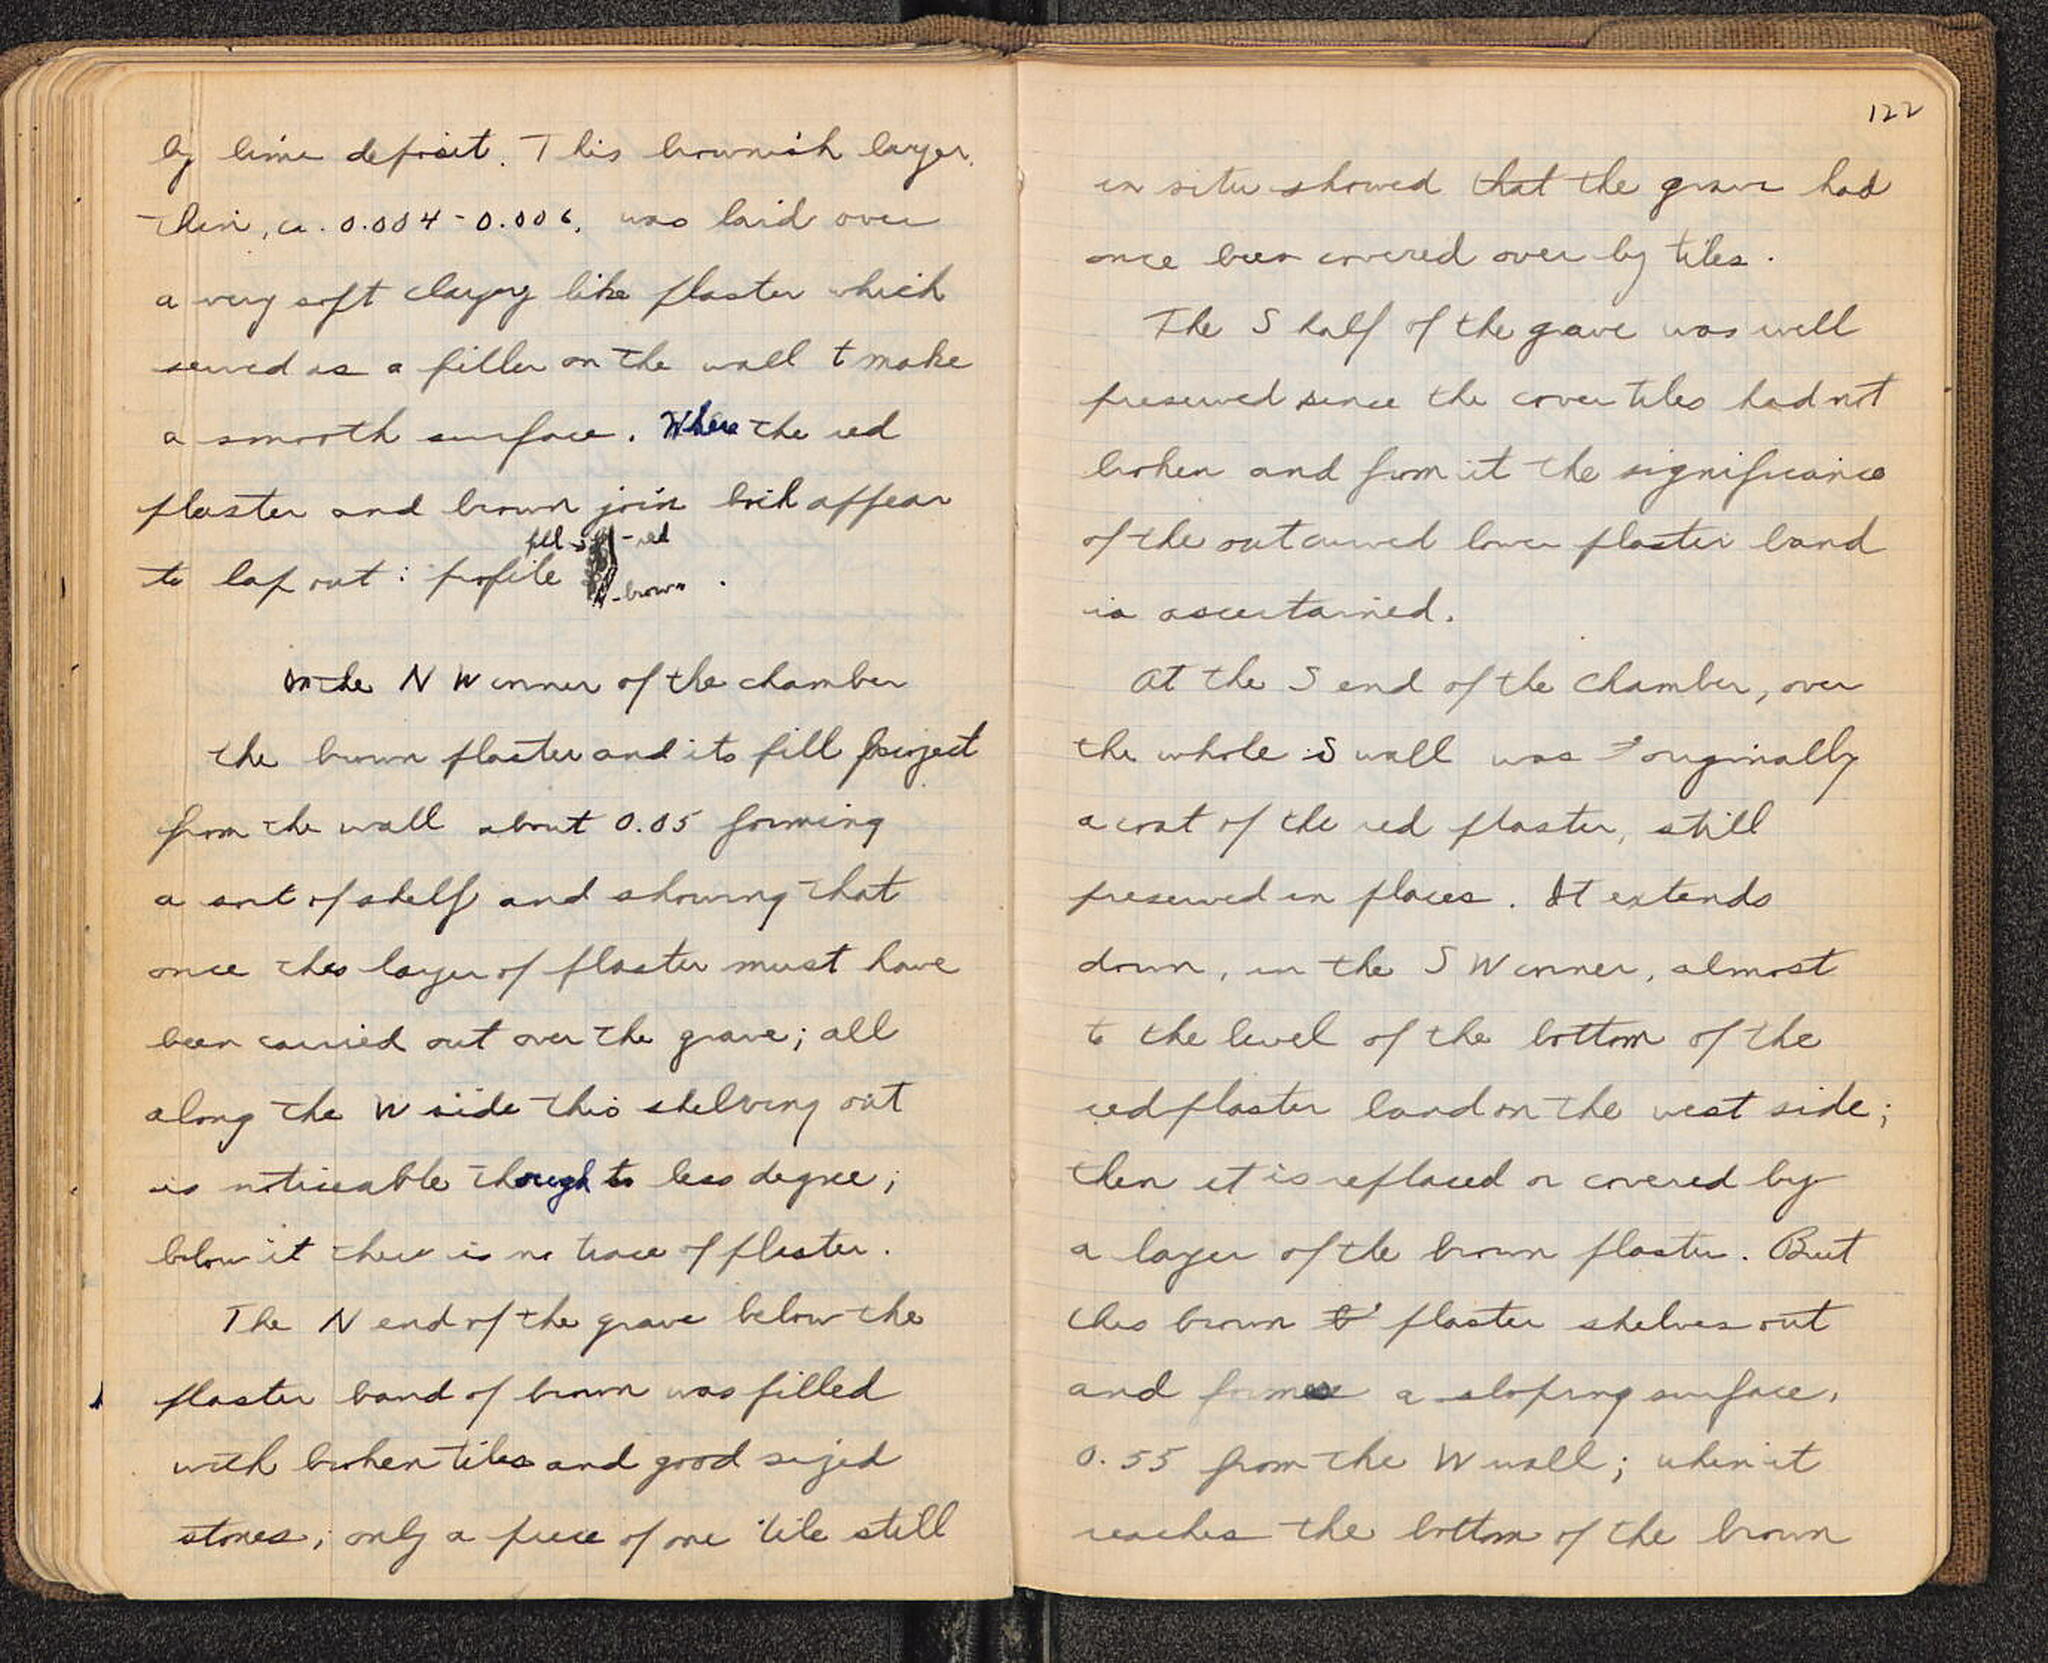 by lime deposit. This brownish layer,
thin, ca. 0.004 - 0.006, was laid over
a very soft clayey like plaster which
served as a filler on the wall to make
a smooth surface. Where the red
plaster and brown join both appear
fill - red
to lap out: profile - brown .
On the N W corner of the chamber
the brown plaster and its fill project
from the wall about 0.05 forming
a sort of shelf and showing that
once this layer of plaster must have
been carried out over the grave; all
along the W side this shelving out
is noticeable though to less degree;
below it there is no trace of plaster.
The N end of the grave below the
plaster band of brown was filled
with broken tiles and good sized
stones; only a piece of one tile still
122
in situ showed that the grave had
once been covered over by tiles.
The S half of the grave was well
preserved since the cover tiles had not
broken and from it the significance
of the out curved lower plaster band
is ascertained.
At the S end of the chamber, over
the whole S wall was originally
a coat of the red plaster, still
preserved in places. It extends
down, in the S W corner, almost
to the level of the bottom of the
red plaster band on the west side;
then it is replaced or covered by
a layer of the brown plaster. But
this brown plaster shelves out
and forms a sloping surface,
0.55 from the W wall; when it
reaches the bottom of the brown